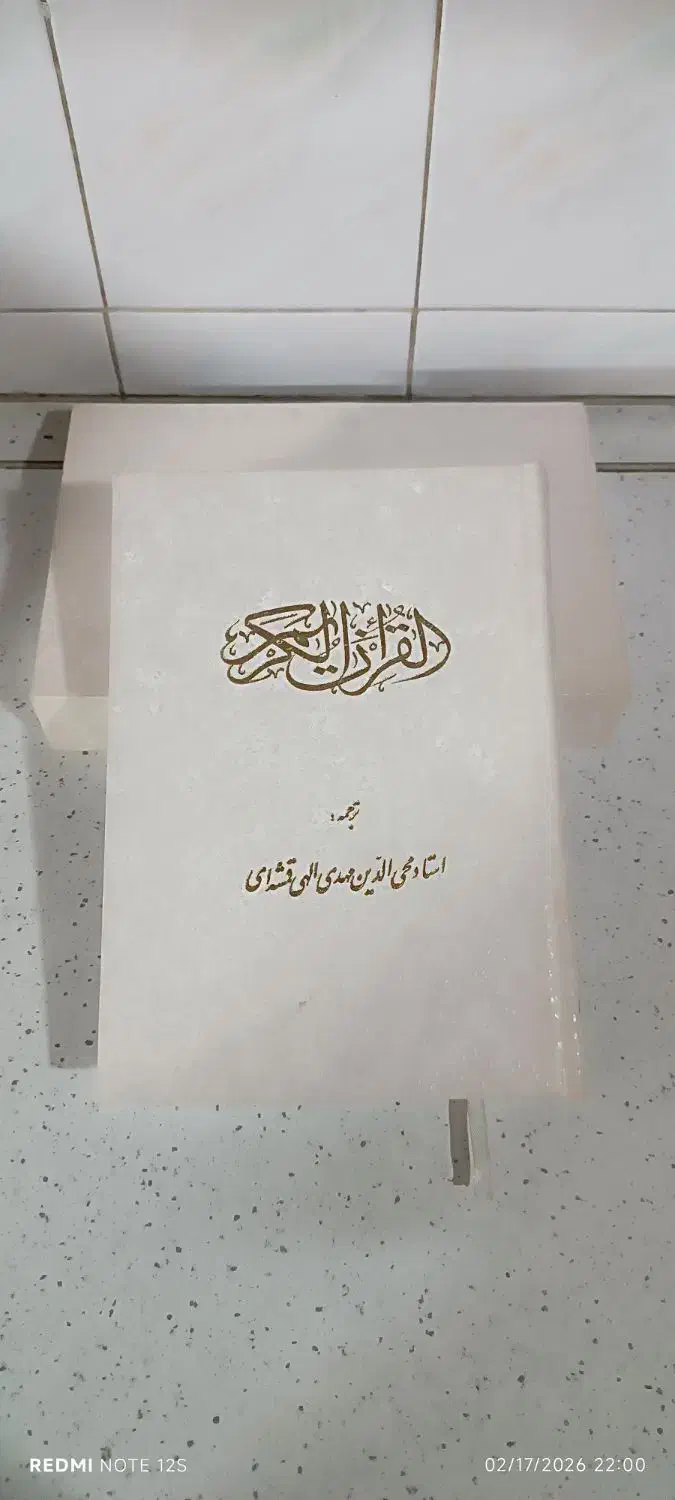 القرآن الکریم
ترجمه:
استاد محی الدّین مهدی الهی قمشه‌ای
REDMI NOTE 12S
02/17/2026 22:00